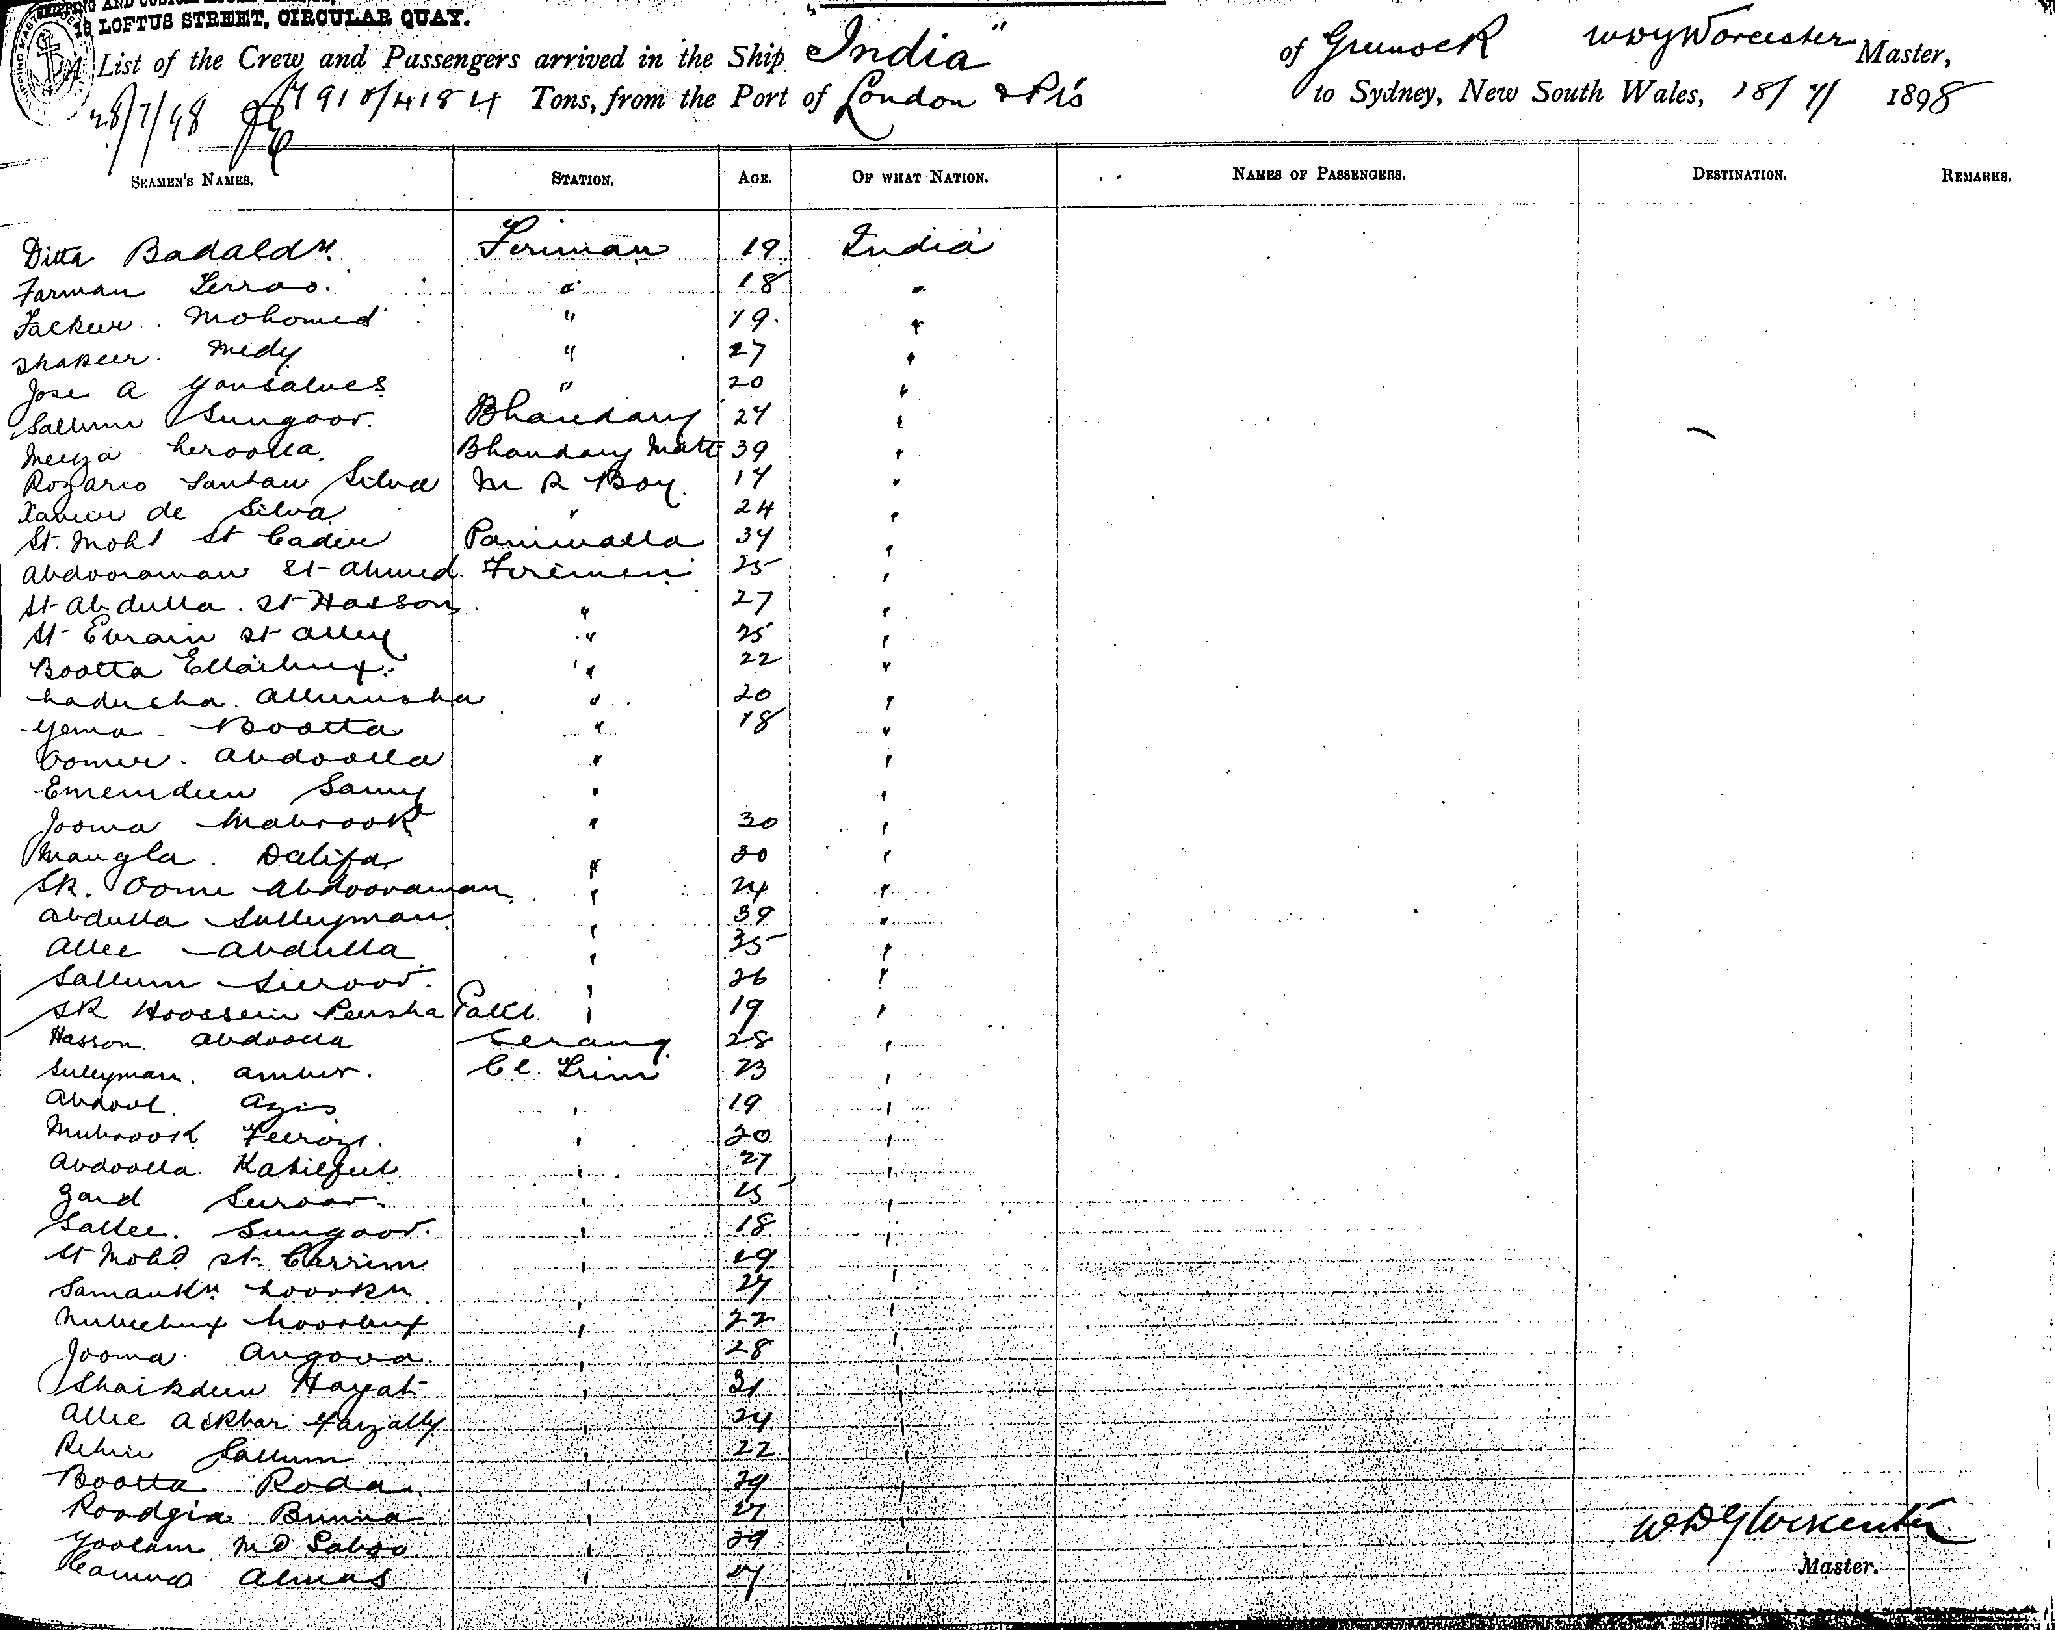 18 LOFTUS STREET, CIRCULAR QUAY.
A List of the Crew and Passengers arrived in the Ship "India" of Greenock WDG Worcester Master,
28/7/98 7910/4184 Tons, from the Port of London & Pts to Sydney, New South Wales, 18/7/ 1898
SEAMEN'S NAMES. STATION. AGE. OF WHAT NATION. NAMES OF PASSENGERS. DESTINATION. REMARKS.
Ditta Badaldn. Fireman 19 India
Farman Ferrao. " 18 "
Fackeer. Mohomed " 19. "
Shakeer. Medy " 27 "
Jose A Gonsalves " 20 "
Sallum Sungoor. Bhandary 24 "
Meeya Bhandary Mate 39 "
Rozario Santan Silva M R Boy. 17 "
Xavier de Silva " 24 "
St. Mohd St Cader Paniwalla 34 "
Abdooraman St Ahmed. Firemen 25 "
St Abdulla. St Hasson " 27 "
St Ebraim St Alley " 25 "
Bootta Ellaibux. " 22 "
" 20 "
Bootta " 18 "
Oomer. Abdoolla " "
Ememdeen Samy " "
Jooma Mabrook " 30 "
Mangla. Dalifa " 30 "
Sk. Oomer Abdooraman " 24 "
Abdulla Sulleyman " 39 "
Allee Abdulla " 35 "
Sallum Suroor. " 26 "
Sk Hoossein Pensha Pakl. " 19 "
Hasson. Abdoolla Serang 28 "
Suleyman. Amber. Cl. Trim 23 "
Abdool. Azis " 19 "
Mubrook Feeroze. " 20 "
Abdoolla. " 27 "
Zaid Suroor. " 15 "
Sallee. Sungoor. " 18 "
St Mohd St. Carrim " 19 "
" 27 "
Noorbux " 22 "
Jooma. Angora. " 28 "
Shaikdeen Hayat " 31 "
Allie Ackbar Fazally " 24 "
Sallum " 22 "
Bootta Roda. " 29 "
Roodgia " 27 "
Goolam Md " 29 "
Almas " 27 "
WDG Worcester
Master.